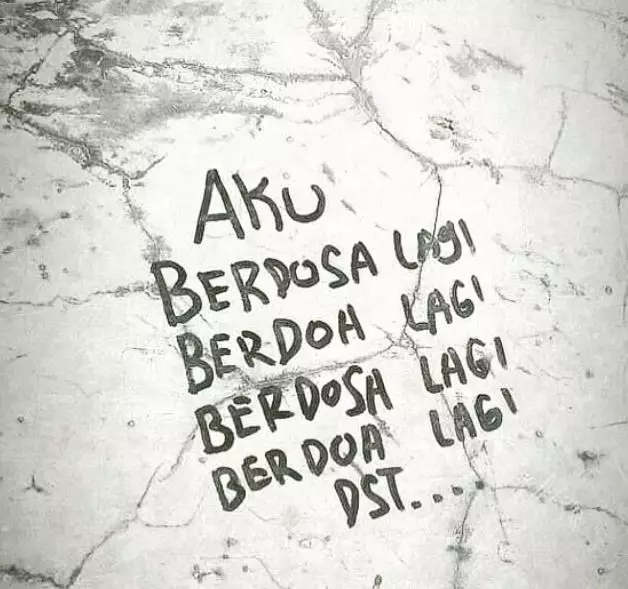 AKU
BERDOSA LAGI
BERDOA LAGI
BERDOSA LAGI
BERDOA LAGI
DST...